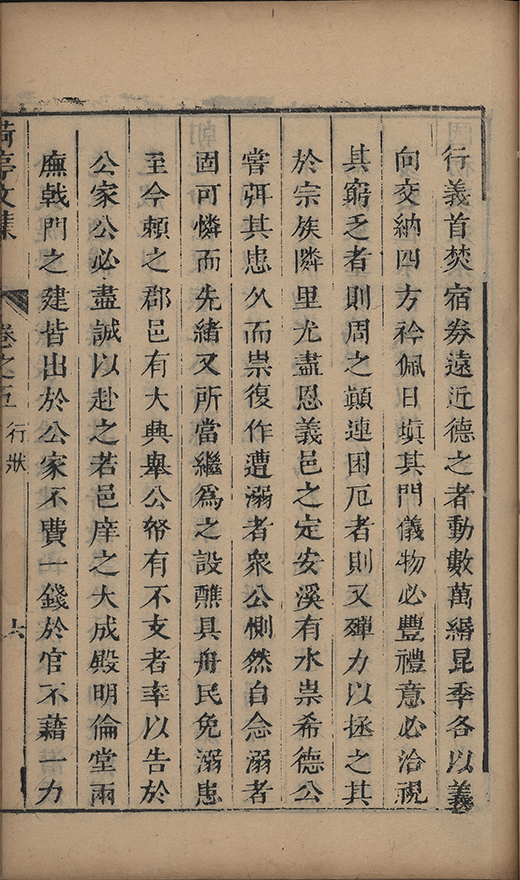 行義首焚宿券遠近德之者動數萬緡昆季各以義
向交納四方衿佩日塡其門儀物必豐禮意必洽視
其窮乏者則周之顚連困厄者則又殫力以拯之其
於宗族隣里尤盡恩義邑之定安溪有水祟希德公
嘗弭其患久而祟復作遭溺者衆公惻然自念溺者
固可憐而先緒又所當繼爲之設醮具舟民免溺患
至今頼之郡邑有大興舉公帑有不支者率以告於
公家公必盡誠以赴之若邑庠之大成殿明倫堂兩
廡戟門之建皆出於公家不費一錢於官不藉一力
荷亭文集
卷之五 行狀
六